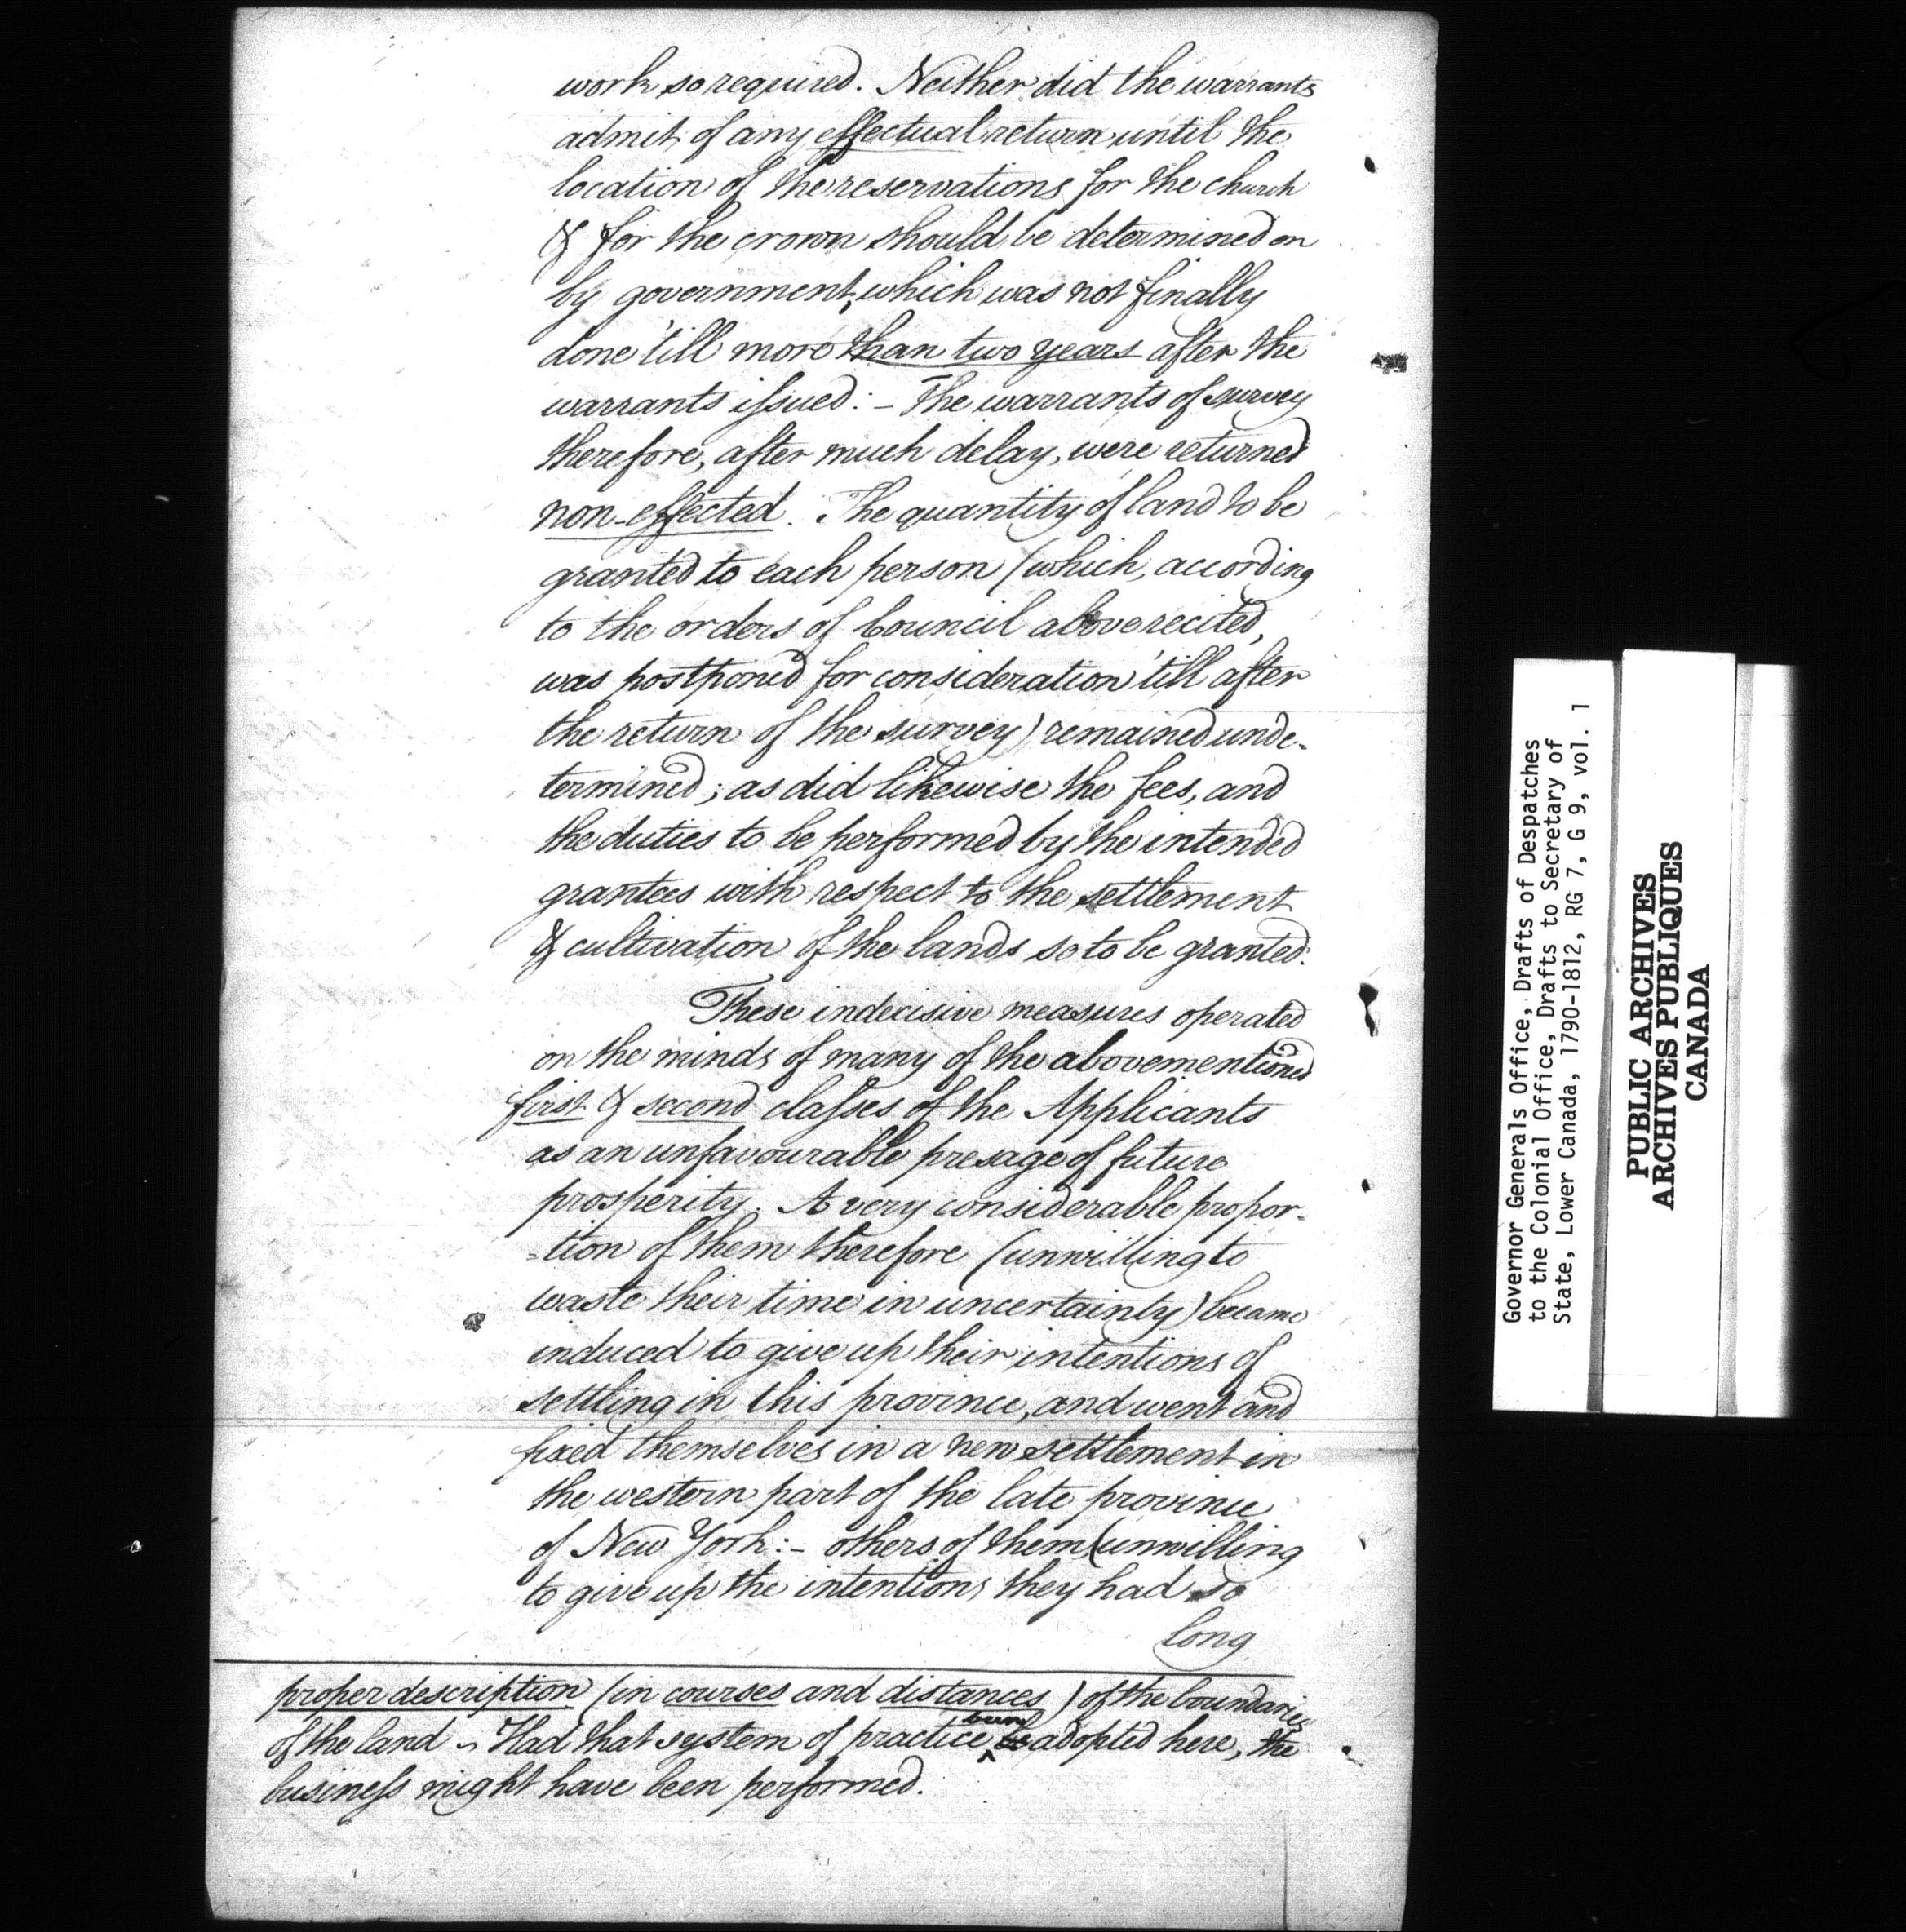 work so required. Neither did the warrants
admit of any effectual return until the
location of the reservations for the church
& for the crown should be determined on
by government, which was not finally
done 'till more than two years after the
warrants issued:- The warrants of survey
therefore, after much delay, were returned
non-effected. The quantity of land to be
granted to each person (which, according
to the orders of Council above recited,
was postponed for consideration 'till after
the return of the survey) remained unde-
termined; as did likewise the fees, and
the duties to be performed by the intended
grantees with respect to the settlement
& cultivation of the lands so to be granted.
These indecisive measures operated
on the minds of many of the abovementioned
first & second classes of the Applicants
as an unfavourable presage of future
prosperity. A very considerable propor-
-tion of them therefore (unwilling to
waste their time in uncertainty) became
induced to give up their intentions of
settling in this province, and went and
fixed themselves in a new settlement in
the western part of the late province
of New York:- others of them (unwilling
to give up the intentions they had so
long
proper description (in courses and distances) of the boundaries
of the land ~ Had that system of practice been adopted here, the
business might have been performed.
Governor Generals Office, Drafts of Despatches
to the Colonial Office, Drafts to Secretary of
State, Lower Canada, 1790-1812, RG 7, G 9, vol. 1
PUBLIC ARCHIVES
ARCHIVES PUBLIQUES
CANADA